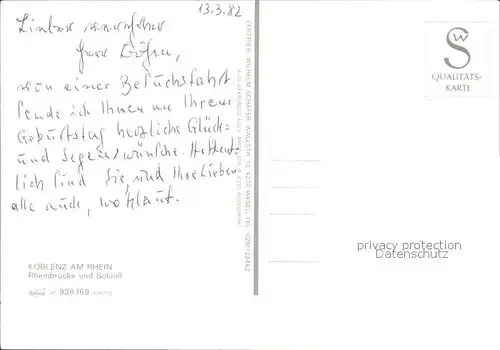 13.3.82
Lieber
Herr
von einer Besuchsfahrt
sende ich Ihnen zu Ihrem
Geburtstag herzliche Glück-
und Segenswünsche. Hoffent-
lich sind Sie und Ihre Lieben
alle auch wohlauf.
KOBLENZ AM RHEIN
Rheinbrücke und Schloß
936 169
VERTRIEB: WILHELM SCHÄFER
4230 WESEL, TEL. 0281/22462
SW
QUALITÄTS-
KARTE
privacy protection
Datenschutz